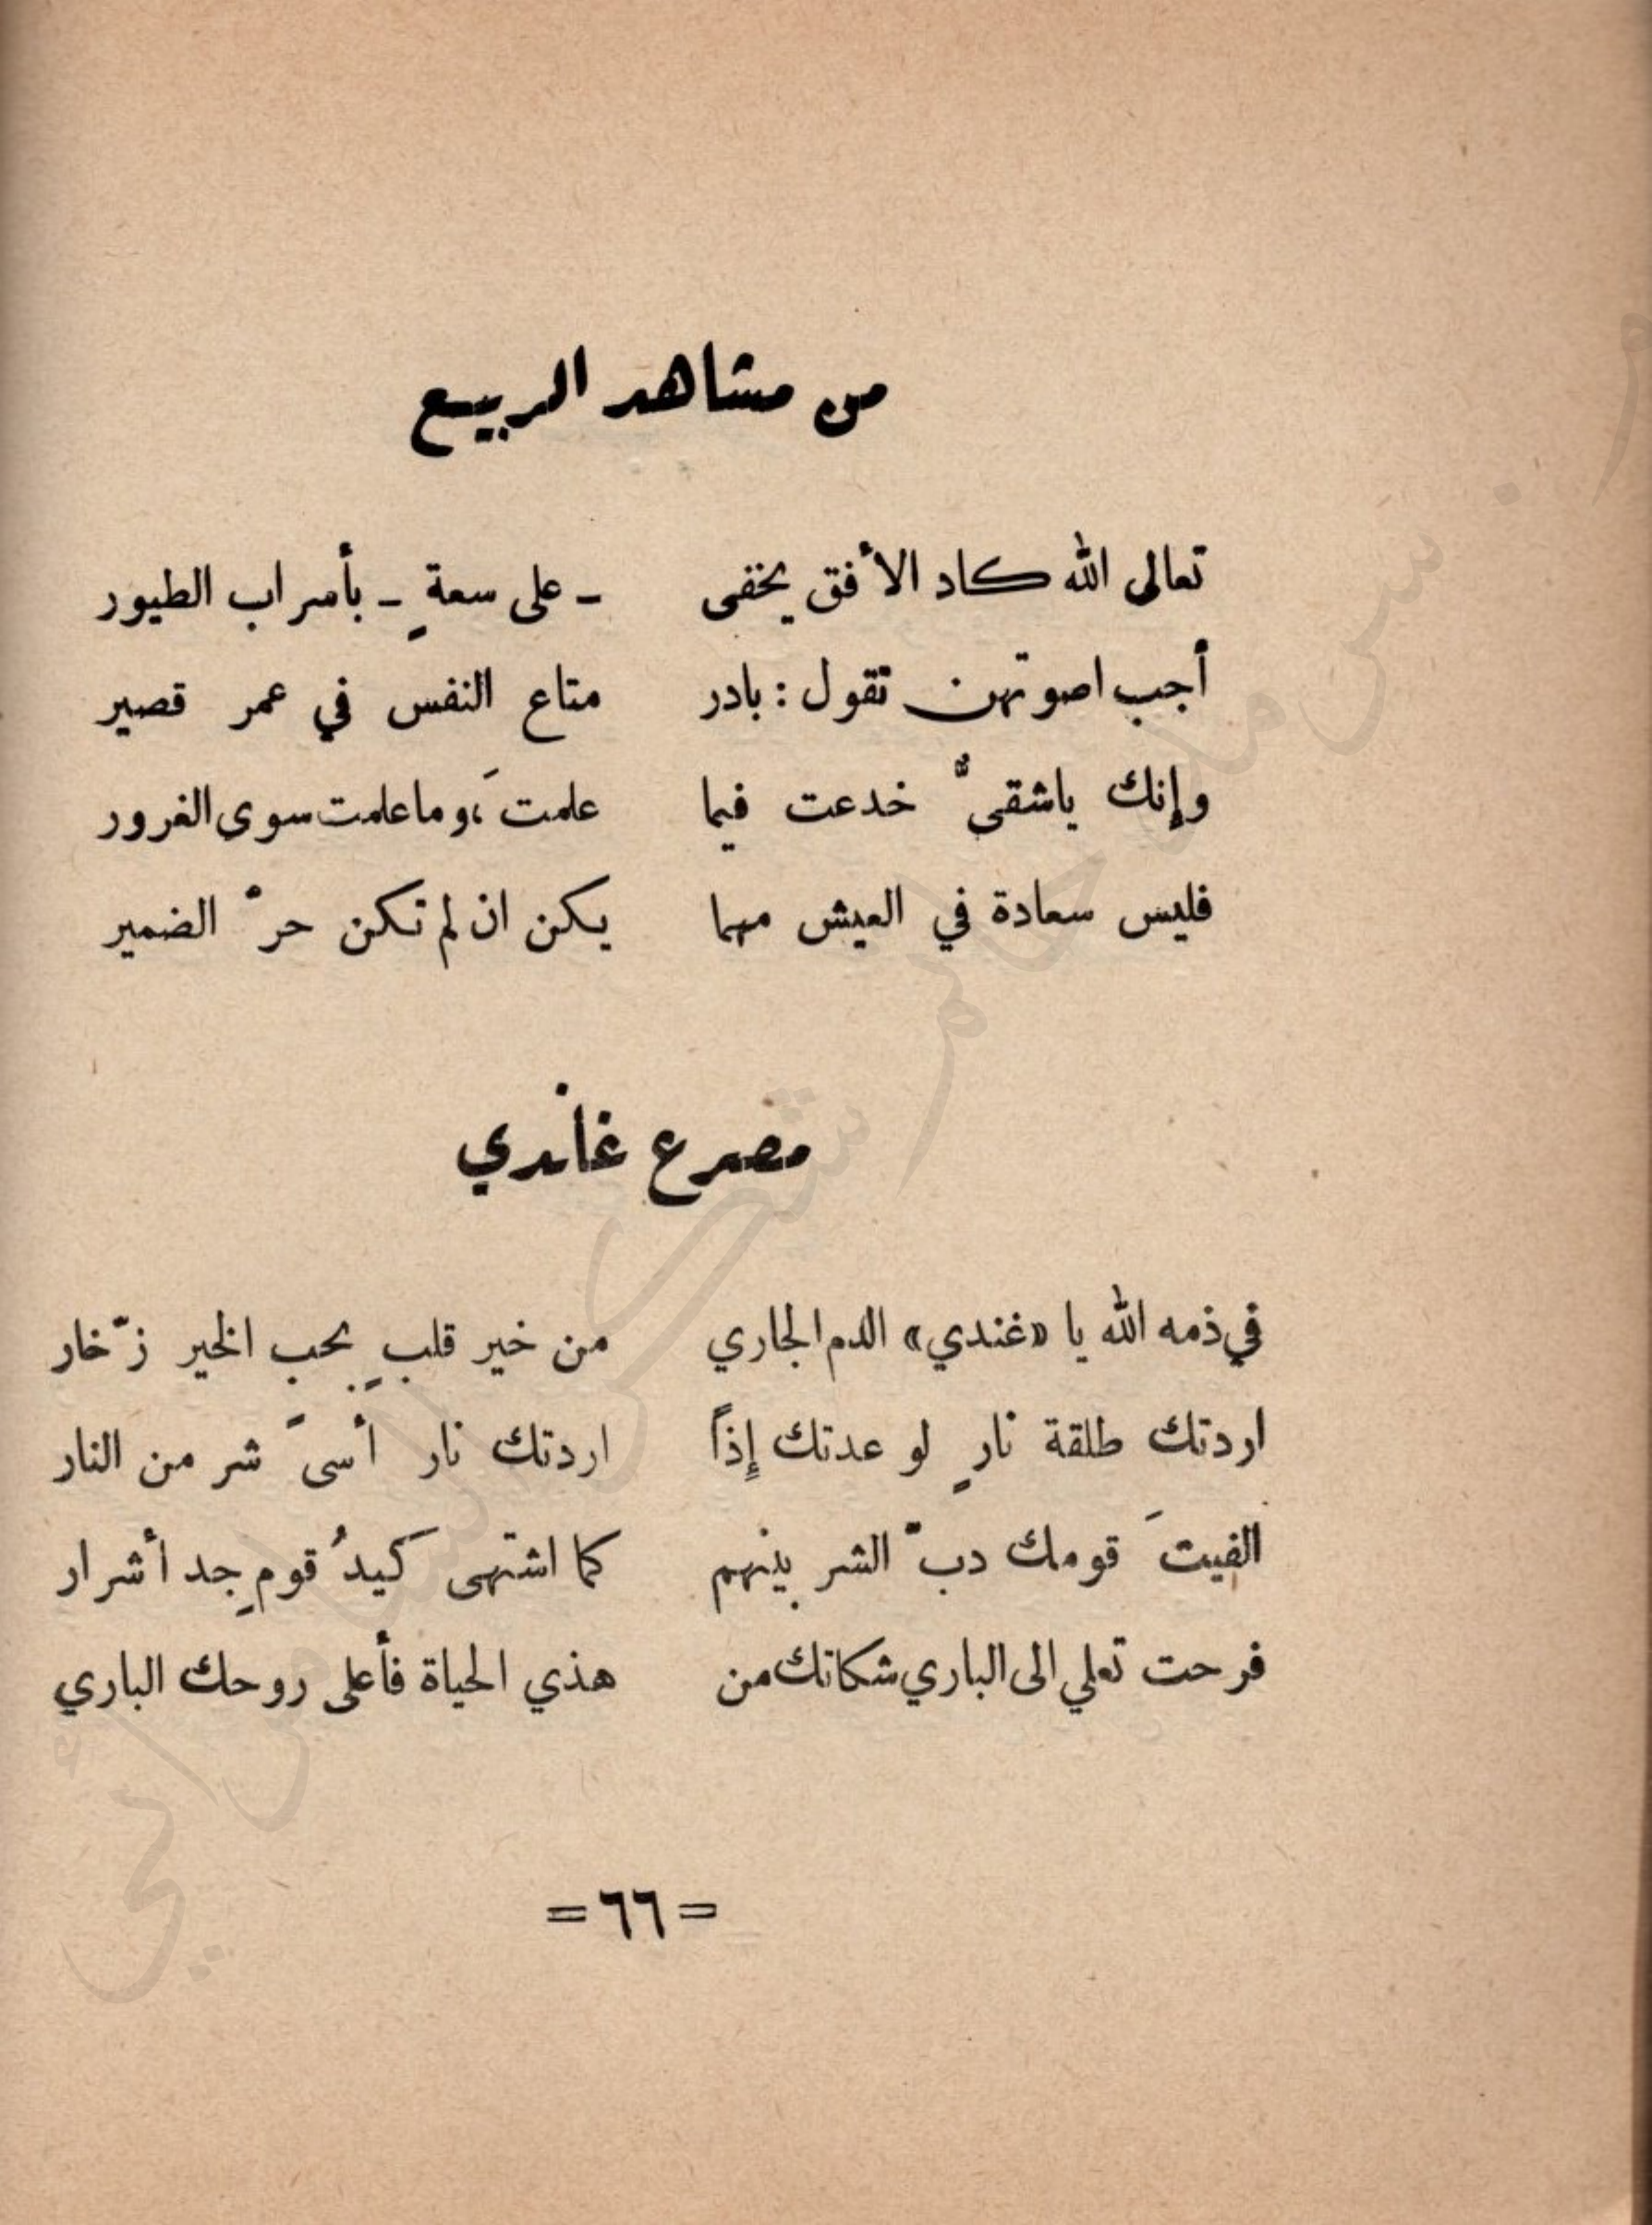 من مشاهد الربيع
تعالى الله كاد الأفق يخفى - على سعةٍ - بأسراب الطيور
أجب اصوتهن تقول : بادر متاع النفس في عمر قصير
وإنك ياشقىٌّ خدعت فيما علمتَ ، وما علمت سوى الغرور
فليس سعادة في العيش مهما يكن ان لم تكن حرّ الضمير
مصرع غاندي
في ذمه الله يا «غندي» الدم الجاري من خير قلبٍ بحبِ الخير زّخار
اردتك طلقة نارٍ لو عدتك إِذاً اردتك نار أسىً شر من النار
الفيتَ قومك دبّ الشر بينهم كما اشتهى كيدُ قومٍ جد أشرار
فرحت تعلي الى الباري شكاتك من هذي الحياة فأعلى روحك الباري
= ٦٦ =